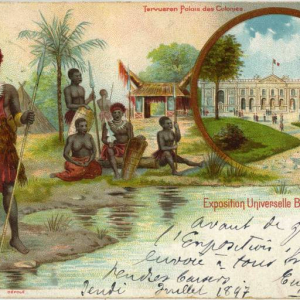 Tervueren Palais des Colonies
Exposition Universelle B
Avant de q
l'Exposition j
envoie à tous
tendres baisers
Jeudi Juillet 1897